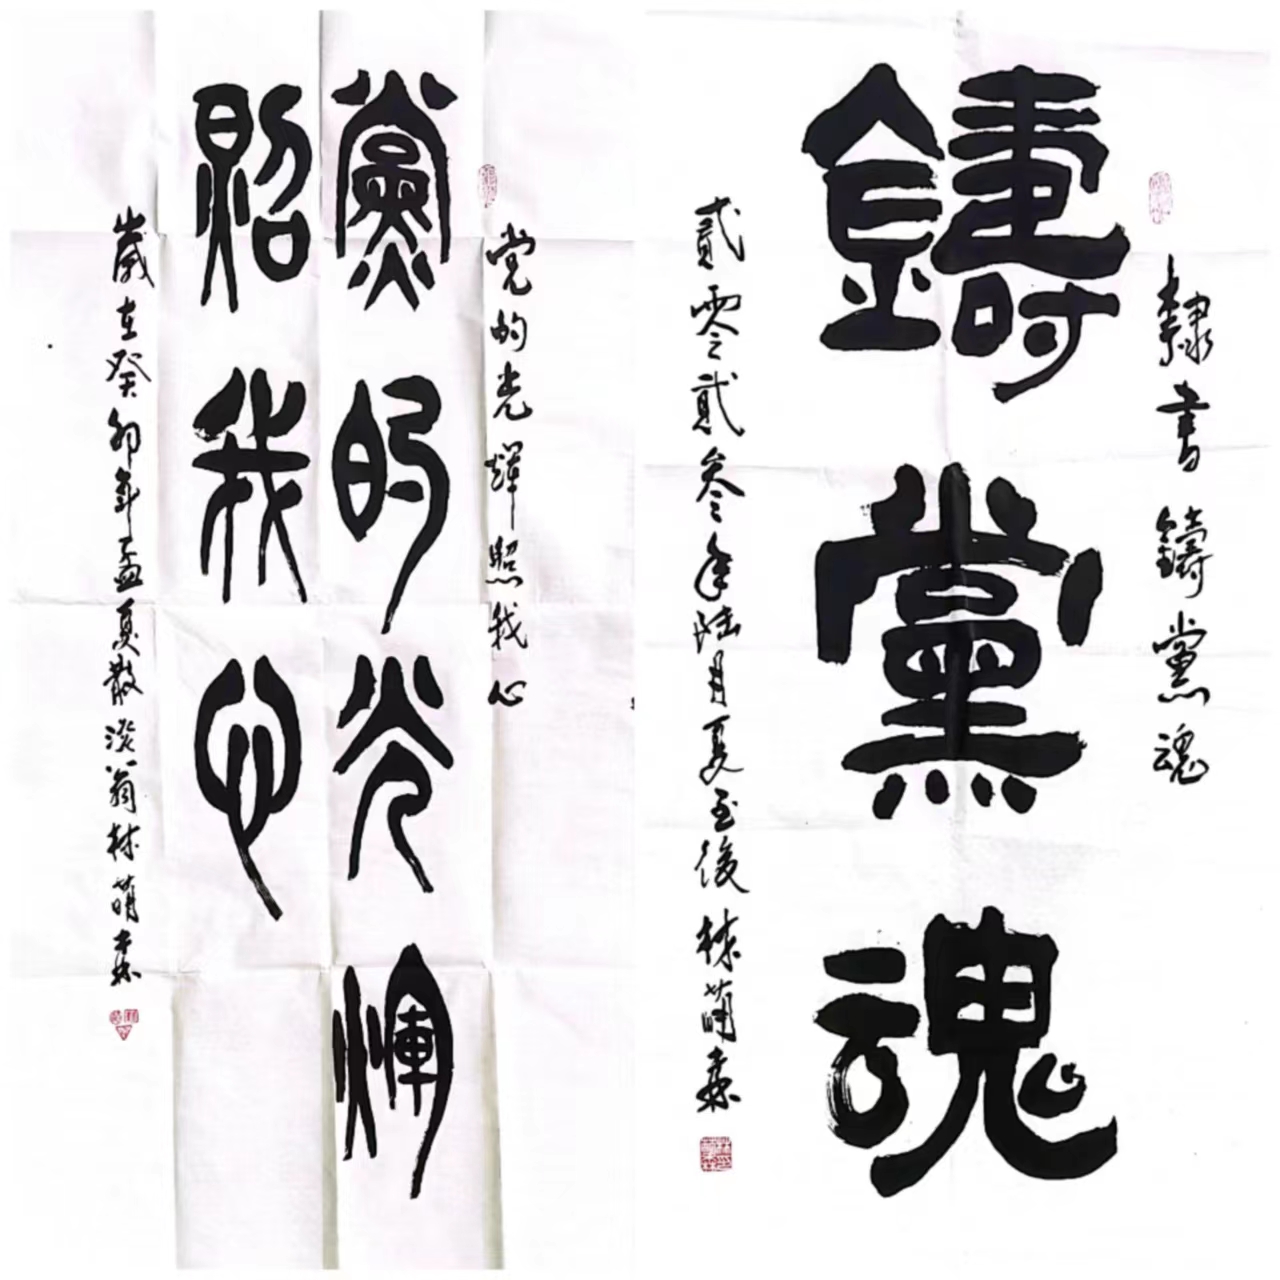 党的光輝照我心
黨的光煇
照我心
歲在癸卯年孟夏散淡翁林萌森
隸書鑄黨魂
鑄
黨
魂
貳零貳叁年陸月夏至後林萌森